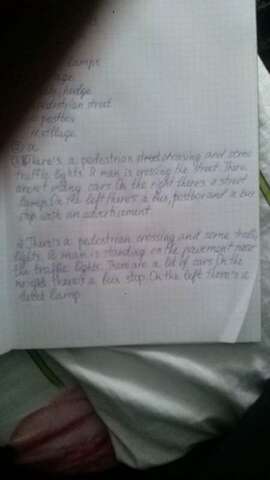 lamps
hedge
pedestrian street
postbox
village
② a
① There's a pedestrian street crossing and some
traffic lights. A man is crossing the street. There
aren't many cars. On the right there's a street
lamp. On the left there's a bus, postbox and a bus
stop with an advertisement.
2 There's a pedestrian crossing and some traffic
lights. A man is standing on the pavement near
the traffic lights. There are a lot of cars. On the
right there's a bus stop. On the left there's a
street lamp.